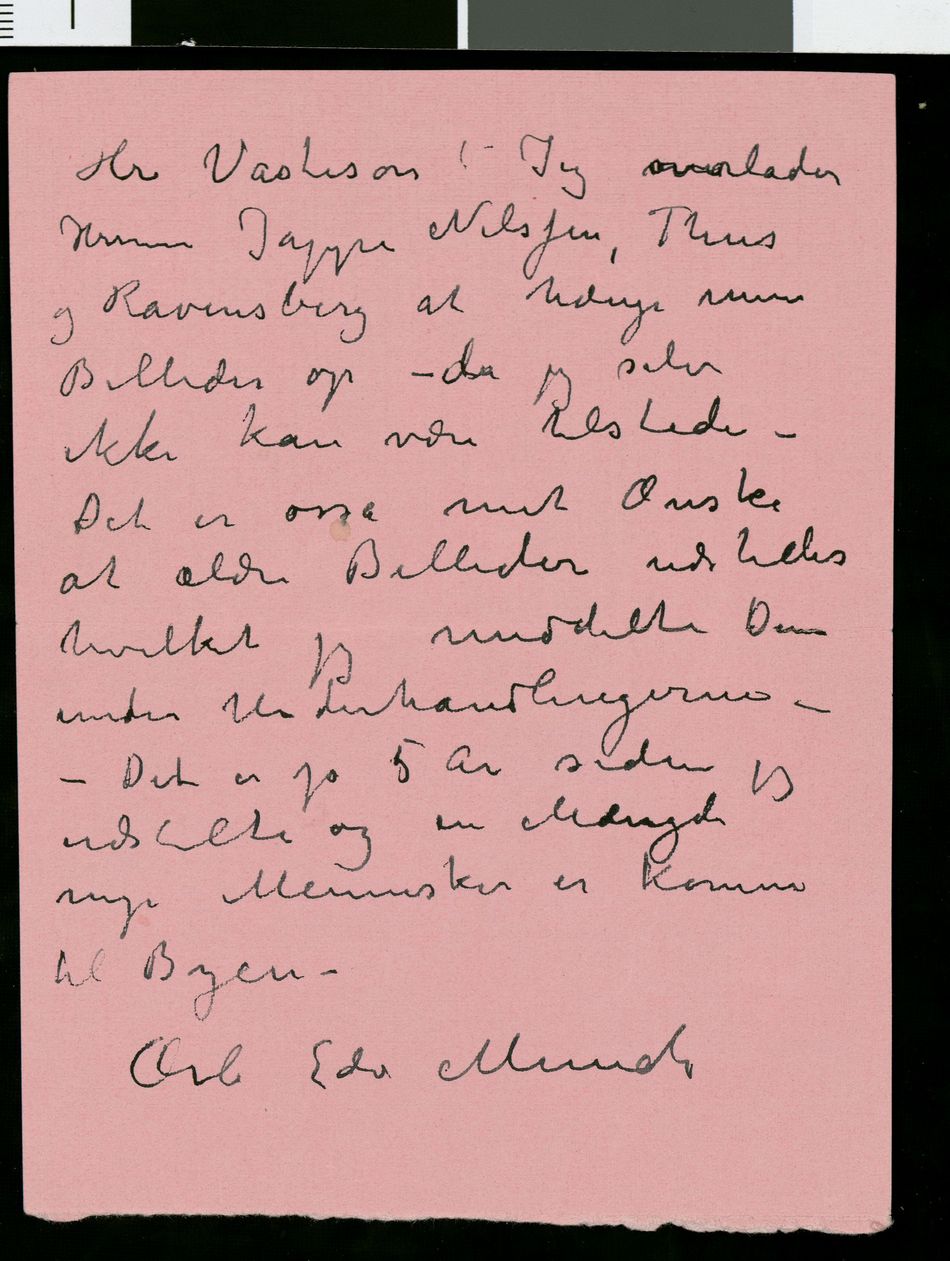 Hr Vastesson! Jeg overlader
Herrerne Jappe Nilssen, Thiis
og Ravensberg at hænge mine
Billeder op – da jeg selv
ikke kan være tilstede –
Det er osså mit Ønske
at ældre Billeder udstilles
hvilket jeg meddelte Dem
under Underhandlingerne –
– Det er jo 5 År siden jeg
udstilte og en Mængde
nye Mennesker er komne
til Byen –
Ærb Edv Munch